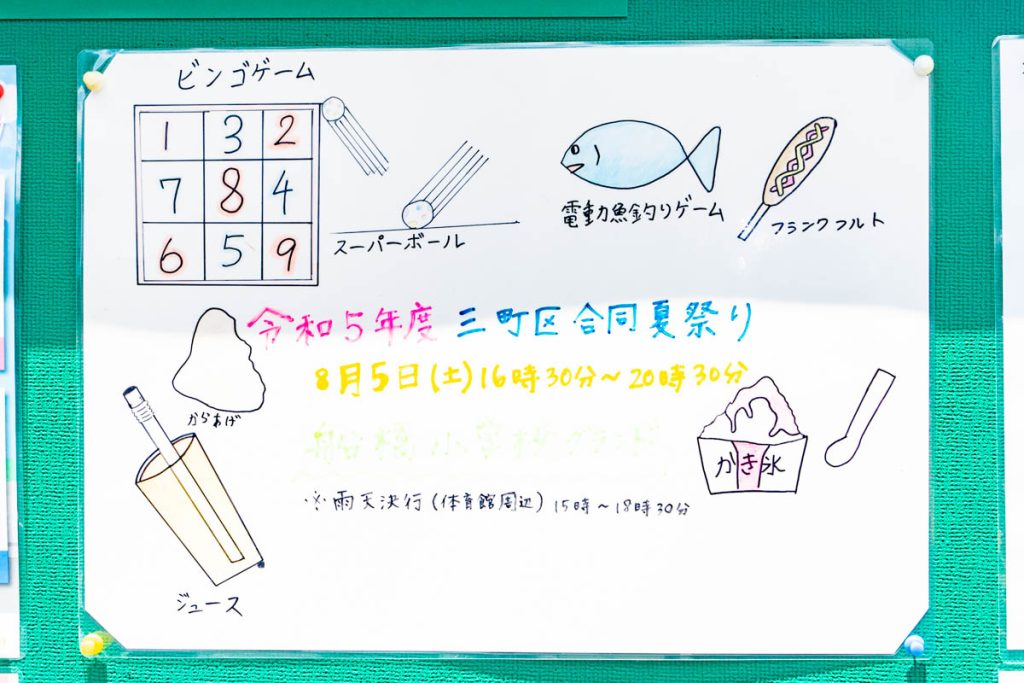 ビンゴゲーム
1 3 2
7 8 4
6 5 9
スーパーボール
電動魚釣りゲーム
フランクフルト
令和5年度 三町区合同夏祭り
8月5日(土)16時30分～20時30分
船橋小学校グランド
からあげ
かき氷
※雨天決行(体育館周辺)15時～18時30分
ジュース